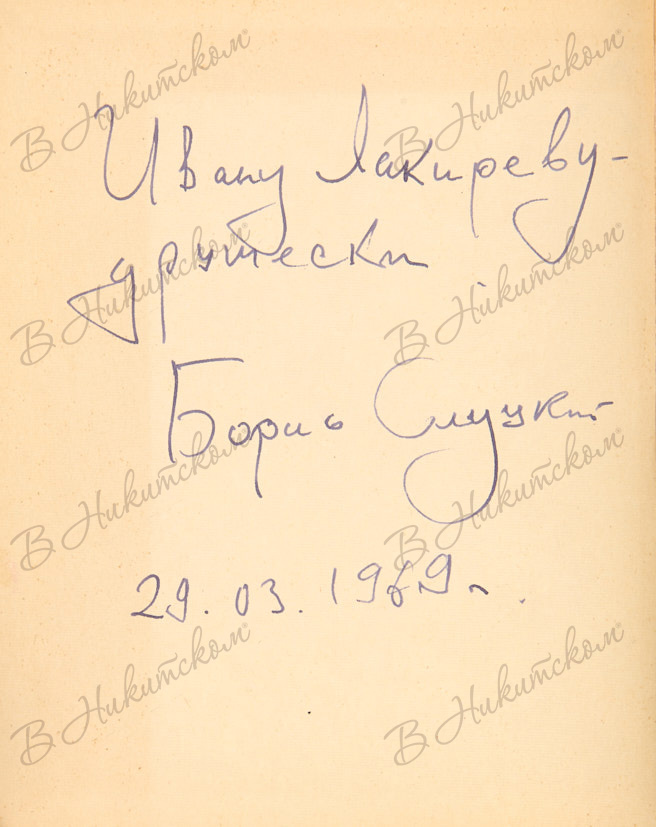 Ивану Лакиреву -
дружески
Борис Слуцкий
29. 03. 1969 г.
В Никитском
В Никитском
В Никитском
В Никитском
В Никитском
В Никитском
В Никитском
В Никитском